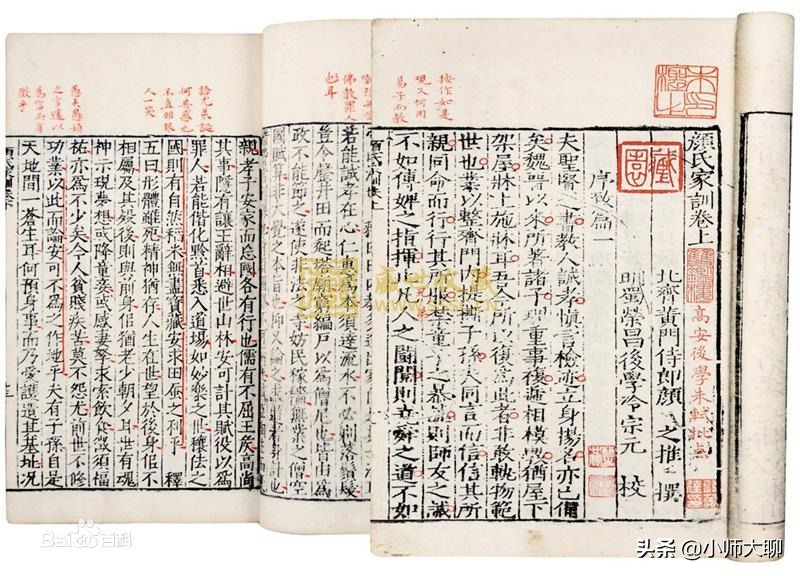 顏氏家訓卷上
北齊黃門侍郎顏 之推 撰
高安後學朱軾批點
明蜀榮昌後學冷宗元 校
序致篇一
夫聖賢之書教人誠孝慎言檢迹立身揚名亦已備
矣魏晉以來所著諸子理重事複遞相模斆猶屋下
架屋牀上施牀耳吾今所以復爲此者非敢軌物範
世也業以整齊門內提撕子孫夫同言而信信其所
親同命而行行其所服禁童子之暴謔則師友之誡
不如傅婢之指揮止凡人之鬭鬩則堯舜之道不如
若能誠孝在心仁惠爲本須達流水不必剃落鬚髮
豈令罄井田而起塔廟窮編戶以爲僧尼也皆由爲
政不能節之遂使非法之寺妨民稼穡無業之僧空
國賦算非大覺之本旨也抑又論之
親孝子安家而忘國各有行也儒有不屈王侯高尚
其事隱有讓王辭相避世山林安可計其賦役以爲
罪人若能偕化黔首悉入道場如妙樂之世穰佉之
國則有自然稻米無盡寶藏安求田蠶之利乎 釋
五曰形體雖死精神猶存人生在世望於後身似不
相屬及其歿後則與前身似猶老少朝夕耳世有魂
神示現夢想或降童妾或感妻孥求索飲食徵須福
祐亦爲不少矣今人貧賤疾苦莫不怨尤前世不修
功業以此而論安可不爲之作地乎夫有子孫自是
天地間一蒼生耳何預身事而乃愛護遺其基址況
Bai百科
头条 @小师大聊